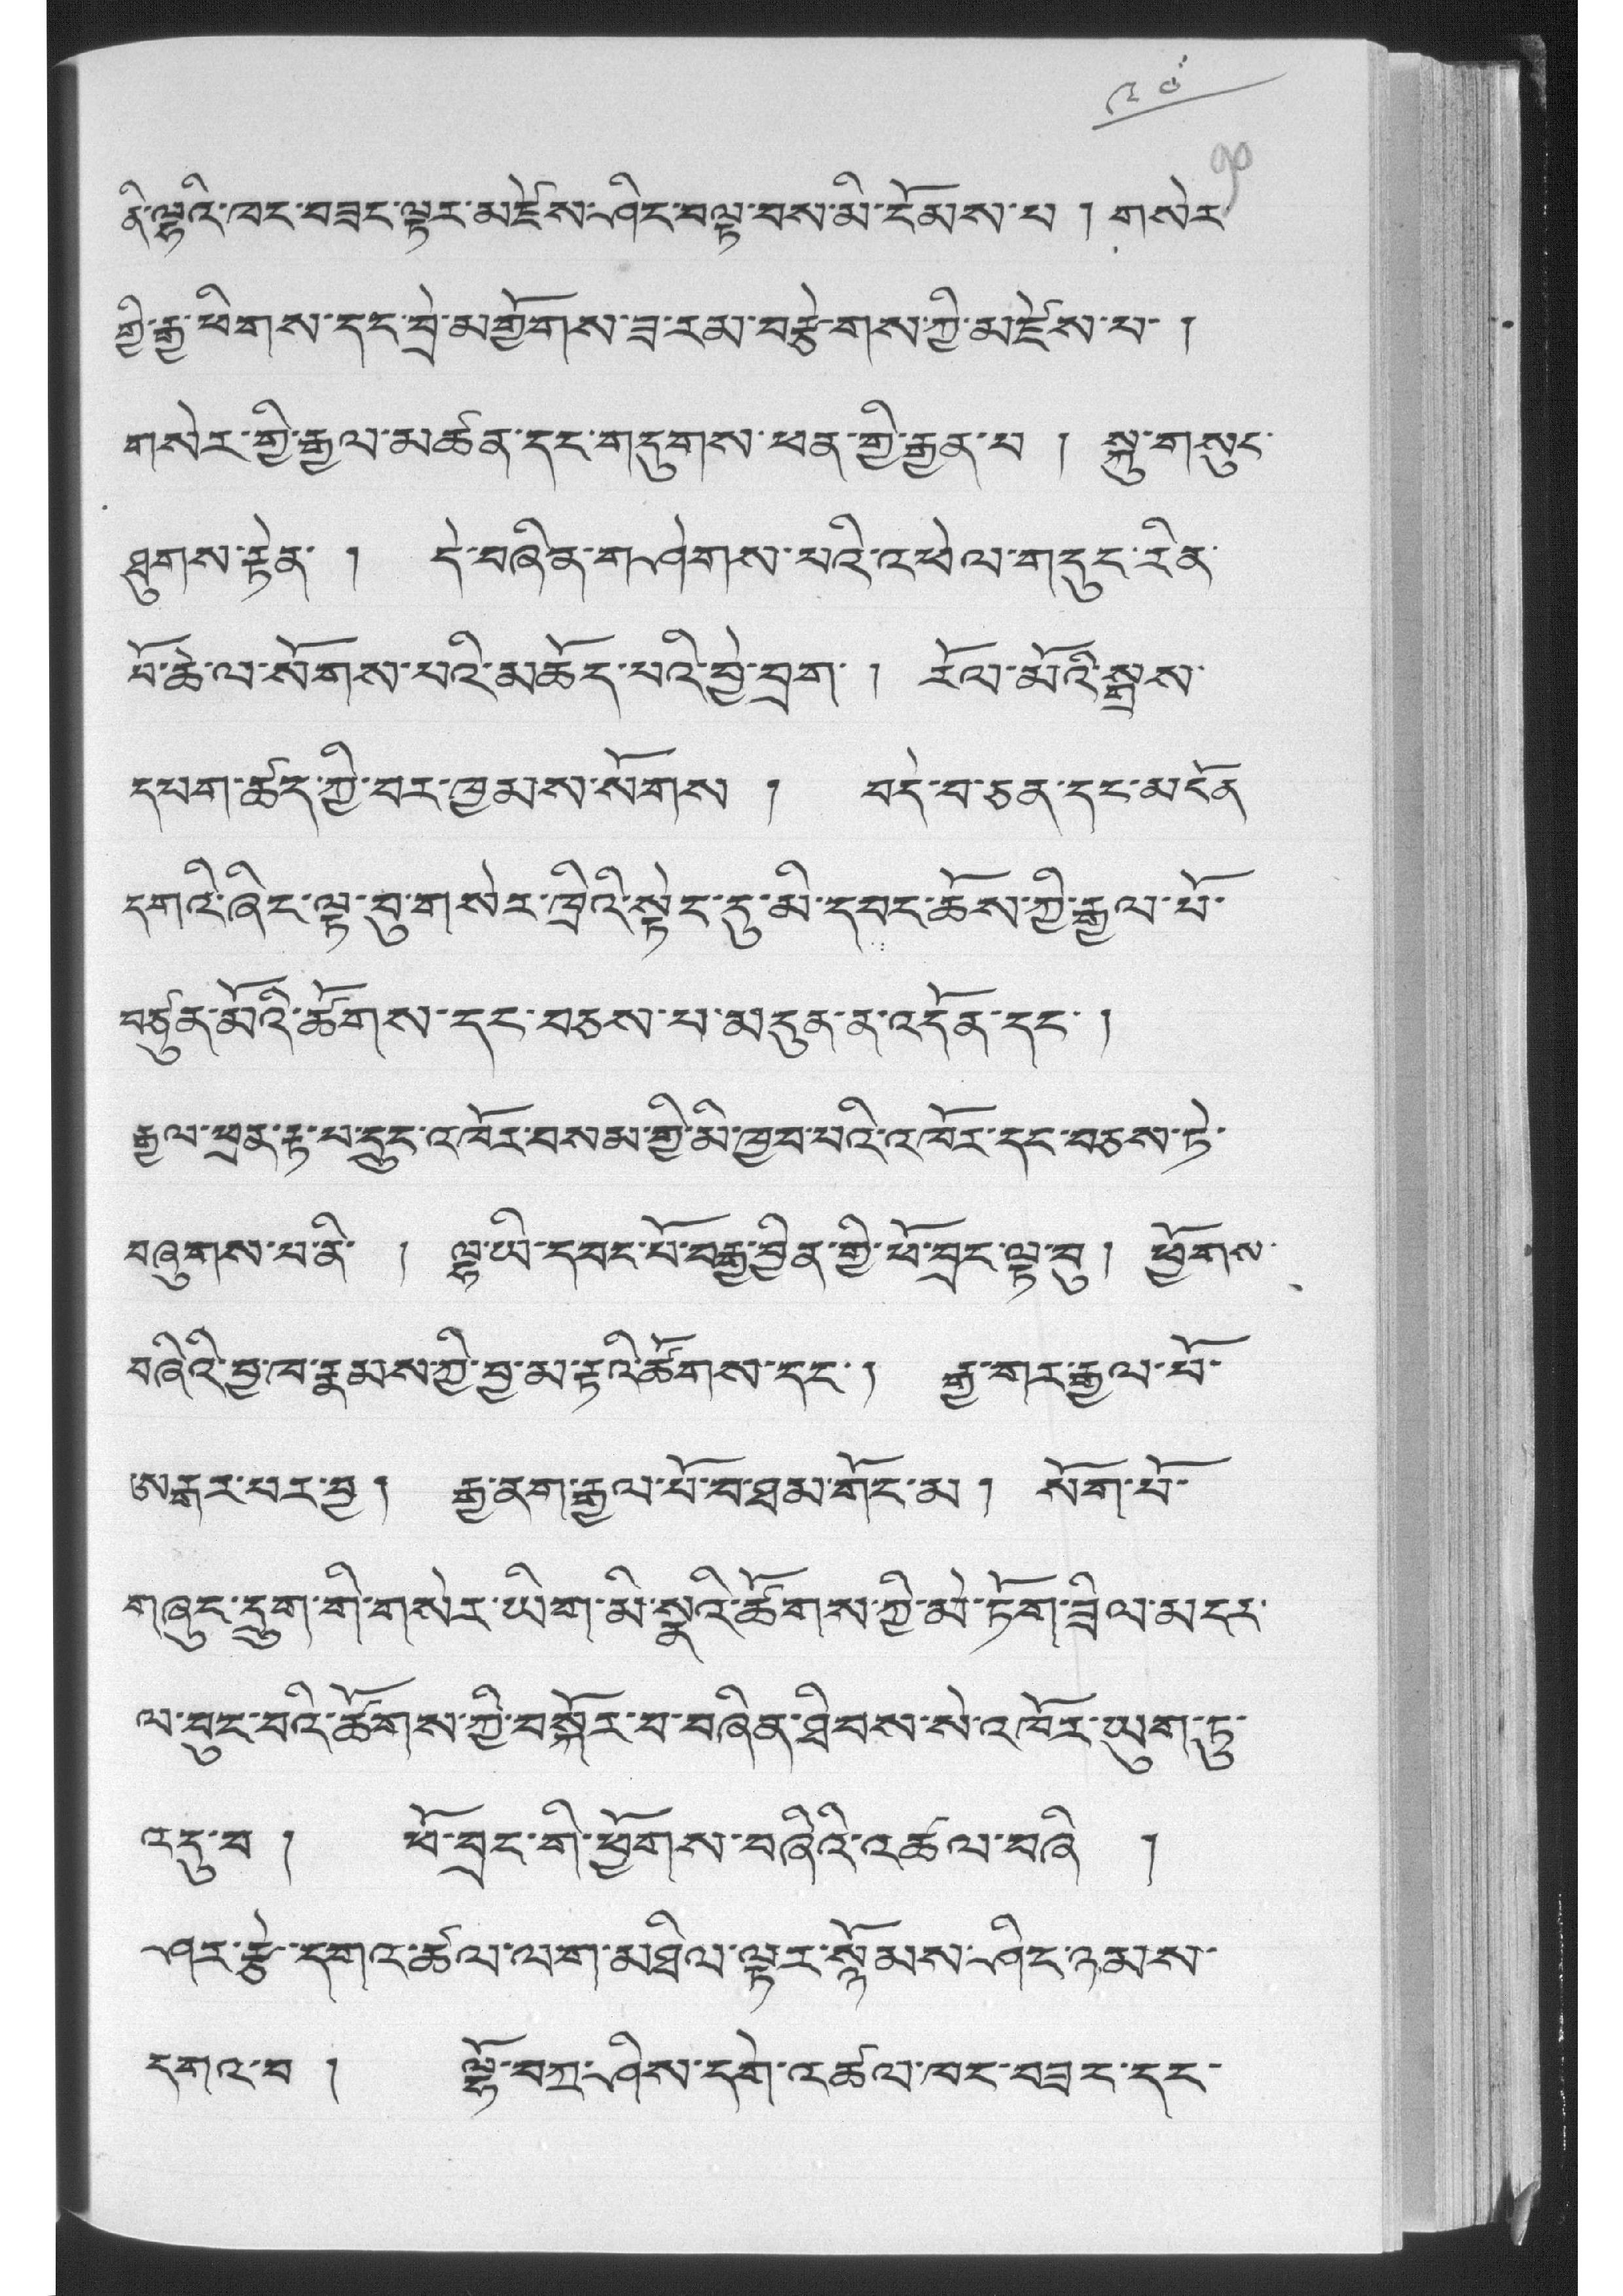 ༩༠
ནི་ལྷའི་ཁང་བཟང་ལྟར་མཛེས་ཤིང་བལྟ་བས་མི་ངོམས་པ། གསེར
གྱི་རྒྱ་ཕིགས་དང་བྲེ་མགྱོགས་ཟ་རམ་བརྩེགས་ཀྱི་མཛེས་པ་།
གསེར་གྱི་རྒྱལ་མཚན་དང་གདུགས་ཕན་གྱི་རྒྱན་པ། སྐུ་གསུང་
ཐུགས་རྟེན་། དེ་བཞིན་གཤེགས་པའི་འཕེལ་གདུང་རིན་
པོ་ཆེ་ལ་སོགས་པའི་མཆོད་པའི་བྱེ་བྲག་། རོལ་མོའི་སྒྲས་
དཔག་ཚད་ཀྱི་བར་ཁྱམས་སོགས། བདེ་བ་ཅན་དང་མངོན
དགའི་ཞིང་ལྟ་བུ་གསེར་ཁྲིའི་སྟེང་དུ་མི་དབང་ཆོས་ཀྱི་རྒྱལ་པོ་
བཙུན་མོའི་ཚོགས་དང་བཅས་པ་མདུན་ན་འདོན་དང་།
རྒྱལ་ཕྲན་རྟ་པ་དྲུང་འཁོར་བསམ་གྱི་མི་ཁྱབ་པའི་འཁོར་དང་བཅས་ཏེ་
བཞུགས་པ་ནི་། ལྷ་ཡི་དབང་པོ་བརྒྱ་བྱིན་གྱི་ཕོ་བྲང་ལྟ་བུ། ཕྱོགས་
བཞིའི་བྱ་ཁ་རྣམས་ཀྱི་བྱ་མ་རྟའི་ཚོགས་དང་། རྒྱ་གར་རྒྱལ་པོ་
ཨ་རྒར་པར་བྱ། རྒྱ་ནག་རྒྱལ་པོ་བ་ཐམ་གོང་མ། སོག་པོ་
གཞུང་དྲུག་གི་གསེར་ཡིག་མི་སྣའི་ཚོགས་ཀྱི་མེ་ཏོག་ཟིལ་མངར་
ལ་བུང་བའི་ཚོགས་ཀྱི་བསྐོར་བ་བཞིན་ཐིབས་སེ་འཁོར་ཡུག་ཏུ་
འདུ་བ། ཕོ་བྲང་གི་ཕྱོགས་བཞིའི་འཚལ་བཞི །
ཤར་རྩེ་དགའ་ཚལ་ལག་མཐིལ་ལྟར་སྙོམས་ཤིང་ཉམས་
དགའ་བ། ལྷོ་བཀྲ་ཤིས་དགེ་འཚལ་ཁང་བཟང་དང་